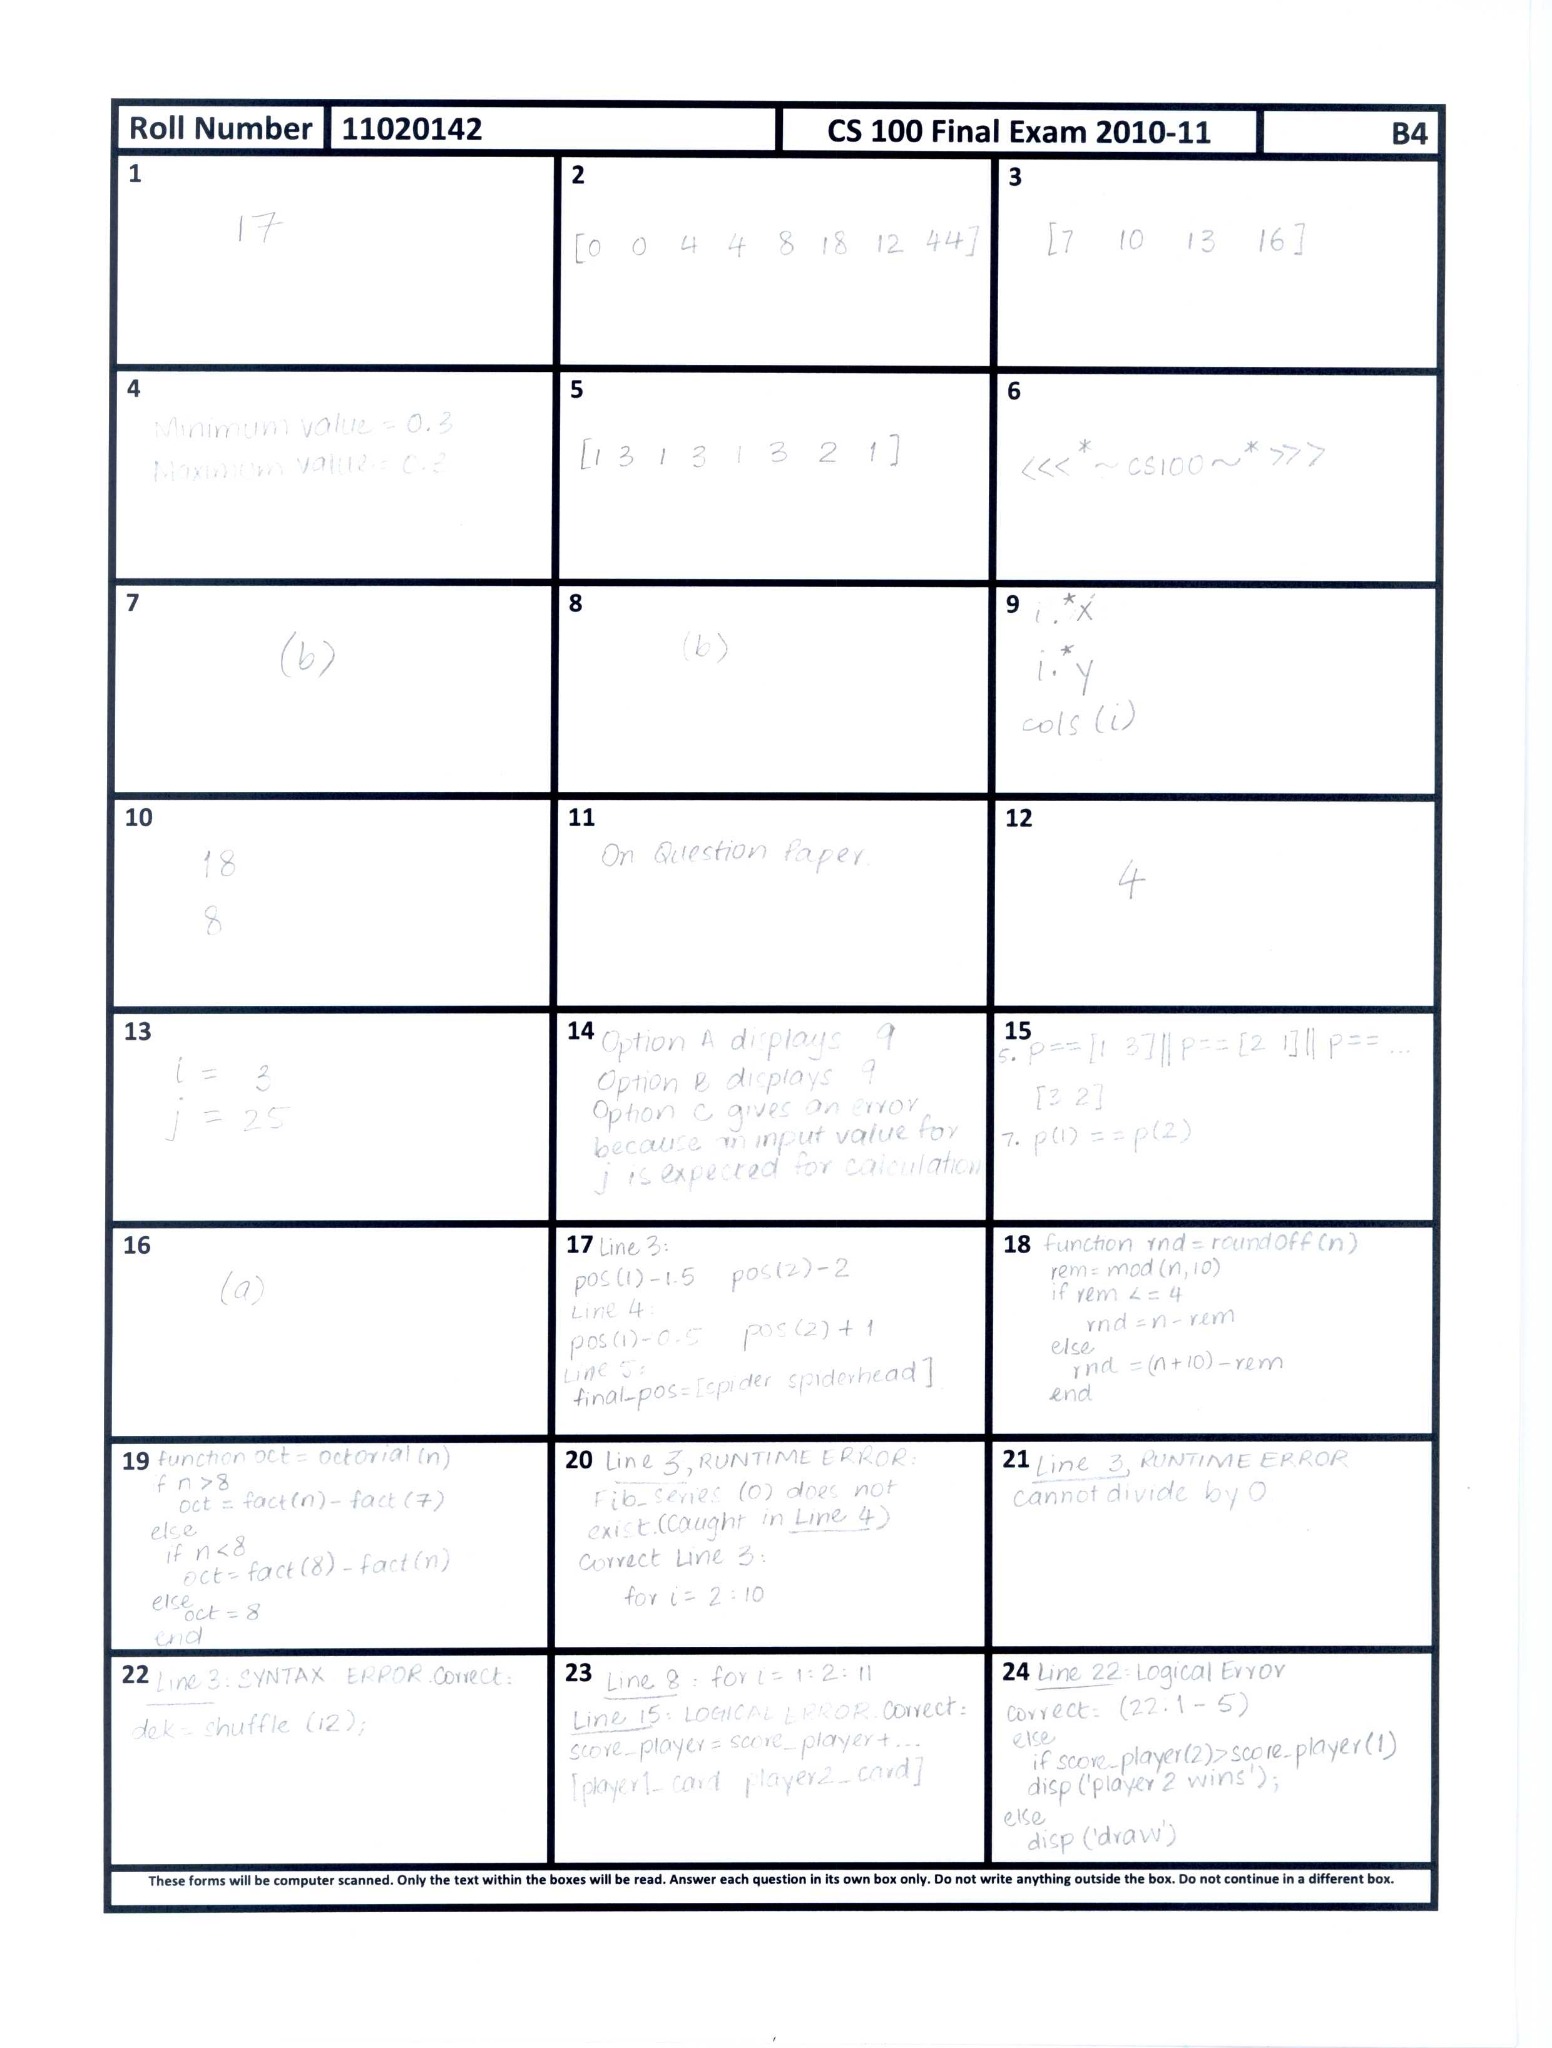 Roll Number 11020142 CS 100 Final Exam 2010-11 B4
1
17
2
[0 0 4 4 8 18 12 44]
3
[7 10 13 16]
4
Minimum value = 0.3
Maximum value =
5
[1 3 1 3 1 3 2 1]
6
<<<*~CS100~*>>>
7
(b)
8
(b)
9
i.*x
i.*y
cols (i)
10
18
8
11
On Question Paper.
12
4
13
i = 3
j = 25
14 Option A displays 9
Option B displays 9
Option C gives an error
because an input value for
j is expected for calculation
15
5. p==[1 3]||p==[2 1]|| p== ...
[3 2]
7. p(1) == p(2)
16
(a)
17 Line 3:
pos(1)-1.5 pos(2)-2
Line 4:
pos(1)-0.5 pos(2)+1
Line 5:
final_pos=[spider spiderhead]
18 function rnd = roundoff(n)
rem= mod(n,10)
if rem <= 4
rnd = n-rem
else
rnd = (n+10)-rem
end
19 function oct = octorial(n)
f n>8
oct = fact(n)- fact(7)
else
if n<8
oct= fact(8)- fact(n)
else
oct = 8
end
20 Line 3, RUNTIME ERROR:
Fib_series (0) does not
exist.(Caught in Line 4)
correct Line 3:
for i= 2:10
21 Line 3, RUNTIME ERROR
cannot divide by 0
22 Line 3: SYNTAX ERROR.Correct:
dek= shuffle (12);
23 Line 8: for i= 1:2:11
Line 15: LOGICAL ERROR.Correct:
score_player= score_player+...
[player1_card player2_card]
24 Line 22: Logical Error
correct: (22.1-5)
else
if score_player(2)>score_player(1)
disp ('player 2 wins');
else
disp ('draw')
These forms will be computer scanned. Only the text within the boxes will be read. Answer each question in its own box only. Do not write anything outside the box. Do not continue in a different box.